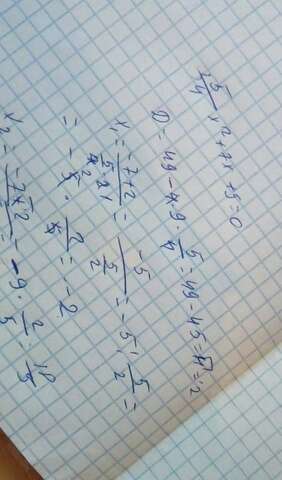 5/4 x² + 7x + 9 = 0
D = 49 - 4·9·5/4 = 49 - 45 = 4 = 2
x₁ = (-7+2)/(5/4·2) = -5/(5/2) = -5 : 5/2 =
= -5 · 2/5 = -2
x₂ = (-7-2)/ = -9 · 2/5 = 18/5